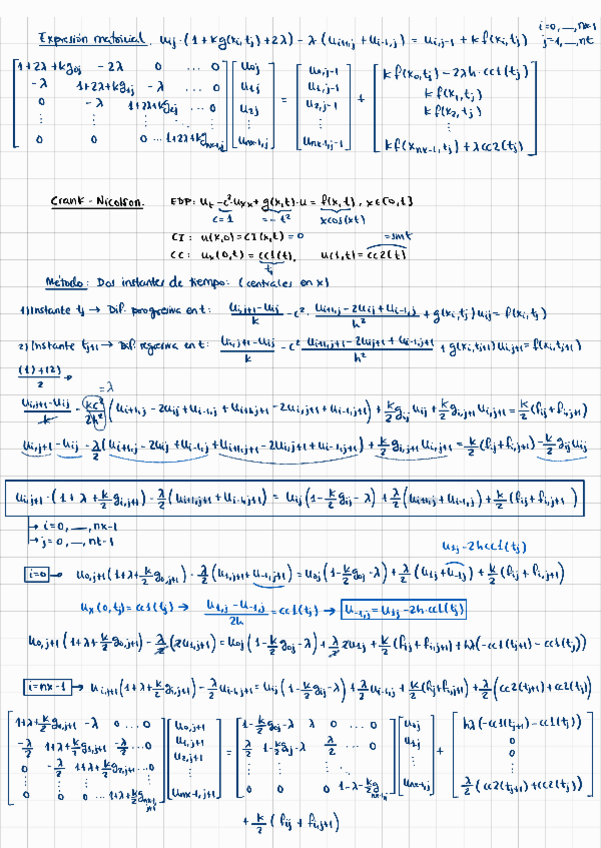 Expresión matricial. u_ij · (1+kg(x_i,t_j)+2λ) - λ(u_i+1,j + u_i-1,j) = u_i,j-1 + k f(x_i,t_j)
i=0,__,nx-1
j=1,__,nt
[1+2λ+kg_0j -2λ 0 ... 0] [u_0j] = [u_0,j-1] + [k f(x_0,t_j) - 2λh·cc1(t_j)]
[-λ 1+2λ+kg_1j -λ ... 0] [u_1j] [u_1,j-1] [k f(x_1,t_j)]
[0 -λ 1+2λ+kg_2j ... 0] [u_2j] [u_2,j-1] [k f(x_2,t_j)]
[⋮ ⋮ ⋮ ⋮] [⋮] [⋮] [⋮]
[0 0 0 ... 1+2λ+kg_nx-1,j] [u_nx-1,j] [u_nx-1,j-1] [k f(x_nx-1,t_j) + λcc2(t_j)]
Crank-Nicolson. EDP: u_t - c²·u_xx + g(x,t)·u = f(x,t), x∈[0,1]
c=1 =-t² xcos(xt)
CI: u(x,0)=CI(x,t)=0 =sint
CC: u_x(0,t)=cc1(t), u(1,t)=cc2(t)
Método: Dos instantes de tiempo: (centrales en x)
1) Instante t_j → Dif. progresiva en t: (u_i,j+1 - u_ij)/k - c²·(u_i+1,j - 2u_ij + u_i-1,j)/h² + g(x_i,t_j)u_ij = f(x_i,t_j)
2) Instante t_j+1 → Dif. regresiva en t: (u_i,j+1 - u_ij)/k - c²(u_i+1,j+1 - 2u_ij+1 + u_i-1,j+1)/h² + g(x_i,t_j+1)u_i,j+1 = f(x_i,t_j+1)
((1)+(2))/2 →
=λ
(u_i,j+1 - u_ij)/k - kc²/2h² (u_i+1,j - 2u_ij + u_i-1,j + u_i+1,j+1 - 2u_i,j+1 + u_i-1,j+1) + k/2 g_ij u_ij + k/2 g_i,j+1 u_i,j+1 = k/2 (f_ij + f_i,j+1)
u_i,j+1 - u_ij - λ/2 (u_i+1,j - 2u_ij + u_i-1,j + u_i+1,j+1 - 2u_i,j+1 + u_i-1,j+1) + k/2 g_i,j+1 u_i,j+1 = k/2 (f_ij + f_i,j+1) - k/2 g_ij u_ij
u_i,j+1 · (1+λ+k/2 g_i,j+1) - λ/2 (u_i+1,j+1 + u_i-1,j+1) = u_ij (1 - k/2 g_ij - λ) + λ/2 (u_i+1,j + u_i-1,j) + k/2 (f_ij + f_i,j+1)
→ i=0,__,nx-1
→ j=0,__,nt-1
u_1j - 2hcc1(t_j)
i=0 → u_0,j+1 (1+λ+k/2 g_0,j+1) - λ/2 (u_1,j+1 + u_-1,j+1) = u_0j (1 - k/2 g_0j - λ) + λ/2 (u_1j + u_-1j) + k/2 (f_ij + f_i,j+1)
u_x(0,t_j) = cc1(t_j) → (u_1,j - u_-1,j)/2h = cc1(t_j) → u_-1,j = u_1j - 2h·cc1(t_j)
u_0,j+1 (1+λ+k/2 g_0,j+1) - λ/2 (2u_1,j+1) = u_0j (1 - k/2 g_0j - λ) + λ/2 2u_1j + k/2 (f_ij + f_i,j+1) + hλ(-cc1(t_j+1) - cc1(t_j))
i=nx-1 → u_i,j+1 (1+λ+k/2 g_i,j+1) - λ/2 u_i-1,j+1 = u_ij (1 - k/2 g_ij - λ) + λ/2 u_i-1,j + k/2 (f_ij + f_i,j+1) + λ/2 (cc2(t_j+1) + cc2(t_j))
[1+λ+k/2 g_0,j+1 -λ 0 ... 0] [u_0,j+1] = [1 - k/2 g_0j - λ λ 0 ... 0] [u_0j] + [hλ(-cc1(t_j+1) - cc1(t_j))]
[-λ/2 1+λ+k/2 g_1,j+1 -λ/2 ... 0] [u_1,j+1] [λ/2 1 - k/2 g_1j - λ λ/2 ... 0] [u_1j] [0]
[0 -λ/2 1+λ+k/2 g_2,j+1 ... 0] [u_2,j+1] [⋮ ⋮ ⋮] [⋮] [0]
[⋮ ⋮ ⋮ ⋮] [⋮] [⋮]
[0 0 0 ... 1+λ+k/2 g_nx-1,j+1] [u_nx-1,j+1] [0 0 0 1-λ-k/2 g_nx-1,j] [u_nx-1,j] [λ/2 (cc2(t_j+1) + cc2(t_j))]
+ k/2 (f_ij + f_i,j+1)